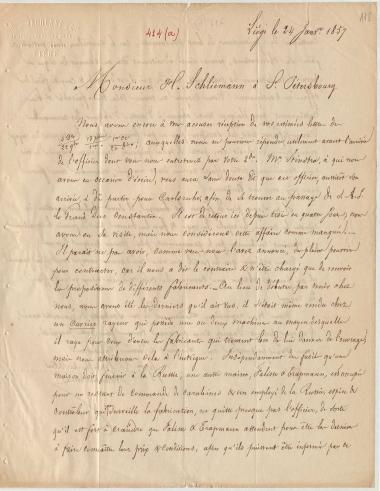 118
414(a)
Liége le 24 Janv. 1857
Monsieur H. Schliemann à St. Pétersbourg
Nous avons encore à vous accuser réception de vos estimées lettres du
auxquelles nous ne pouvions répondre utilement avant l'arrivée
de l'officier dont vous nous entretenez par votre
avons eu occasion d'écrire, vous aura sans doute dit que cet officier, aussitôt son
arrivée, a dû partir pour Carlsrouhe, afin de se trouver au passage de S. A. I.
le Grand Duc Constantin. Il est de retour ici depuis trois ou quatre jours, nous
avons eu sa visite, mais nous considérons cette affaire comme manquée.
Il paraît ne pas avoir, comme vous nous l'avez annoncé, de pleins pouvoirs
pour contracter, car il nous a dit le contraire & n'être chargé que de recevoir
les propositions de différents fabricants. Au lieu de débuter par rendre chez
nous, nous avons été les derniers qu'il ait vus, il s'était même rendu chez
un ouvrier rayeur qui possède une ou deux machines au moyen desquelles
il raye pour ceux d'entre les fabricants qui trouvent bon de lui donner de l'ouvrage;
mais nous attribuons cela à l'intrigue. Indépendamment du fusil qu'un
maison doit fournir à la Russie, une autre maison, Falisse & Trapmann, est occupée
pour un restant de commande de carabines & un employé de la Russie, espèce de
contrôleur qui surveille la fabrication, ne quitte presque pas l'officier, de sorte
qu'il est fort à craindre que Falisse & Trapmann attendront pour être les derniers
à faire connaître leur prix & conditions, après qu'ils puissent être informés par ce